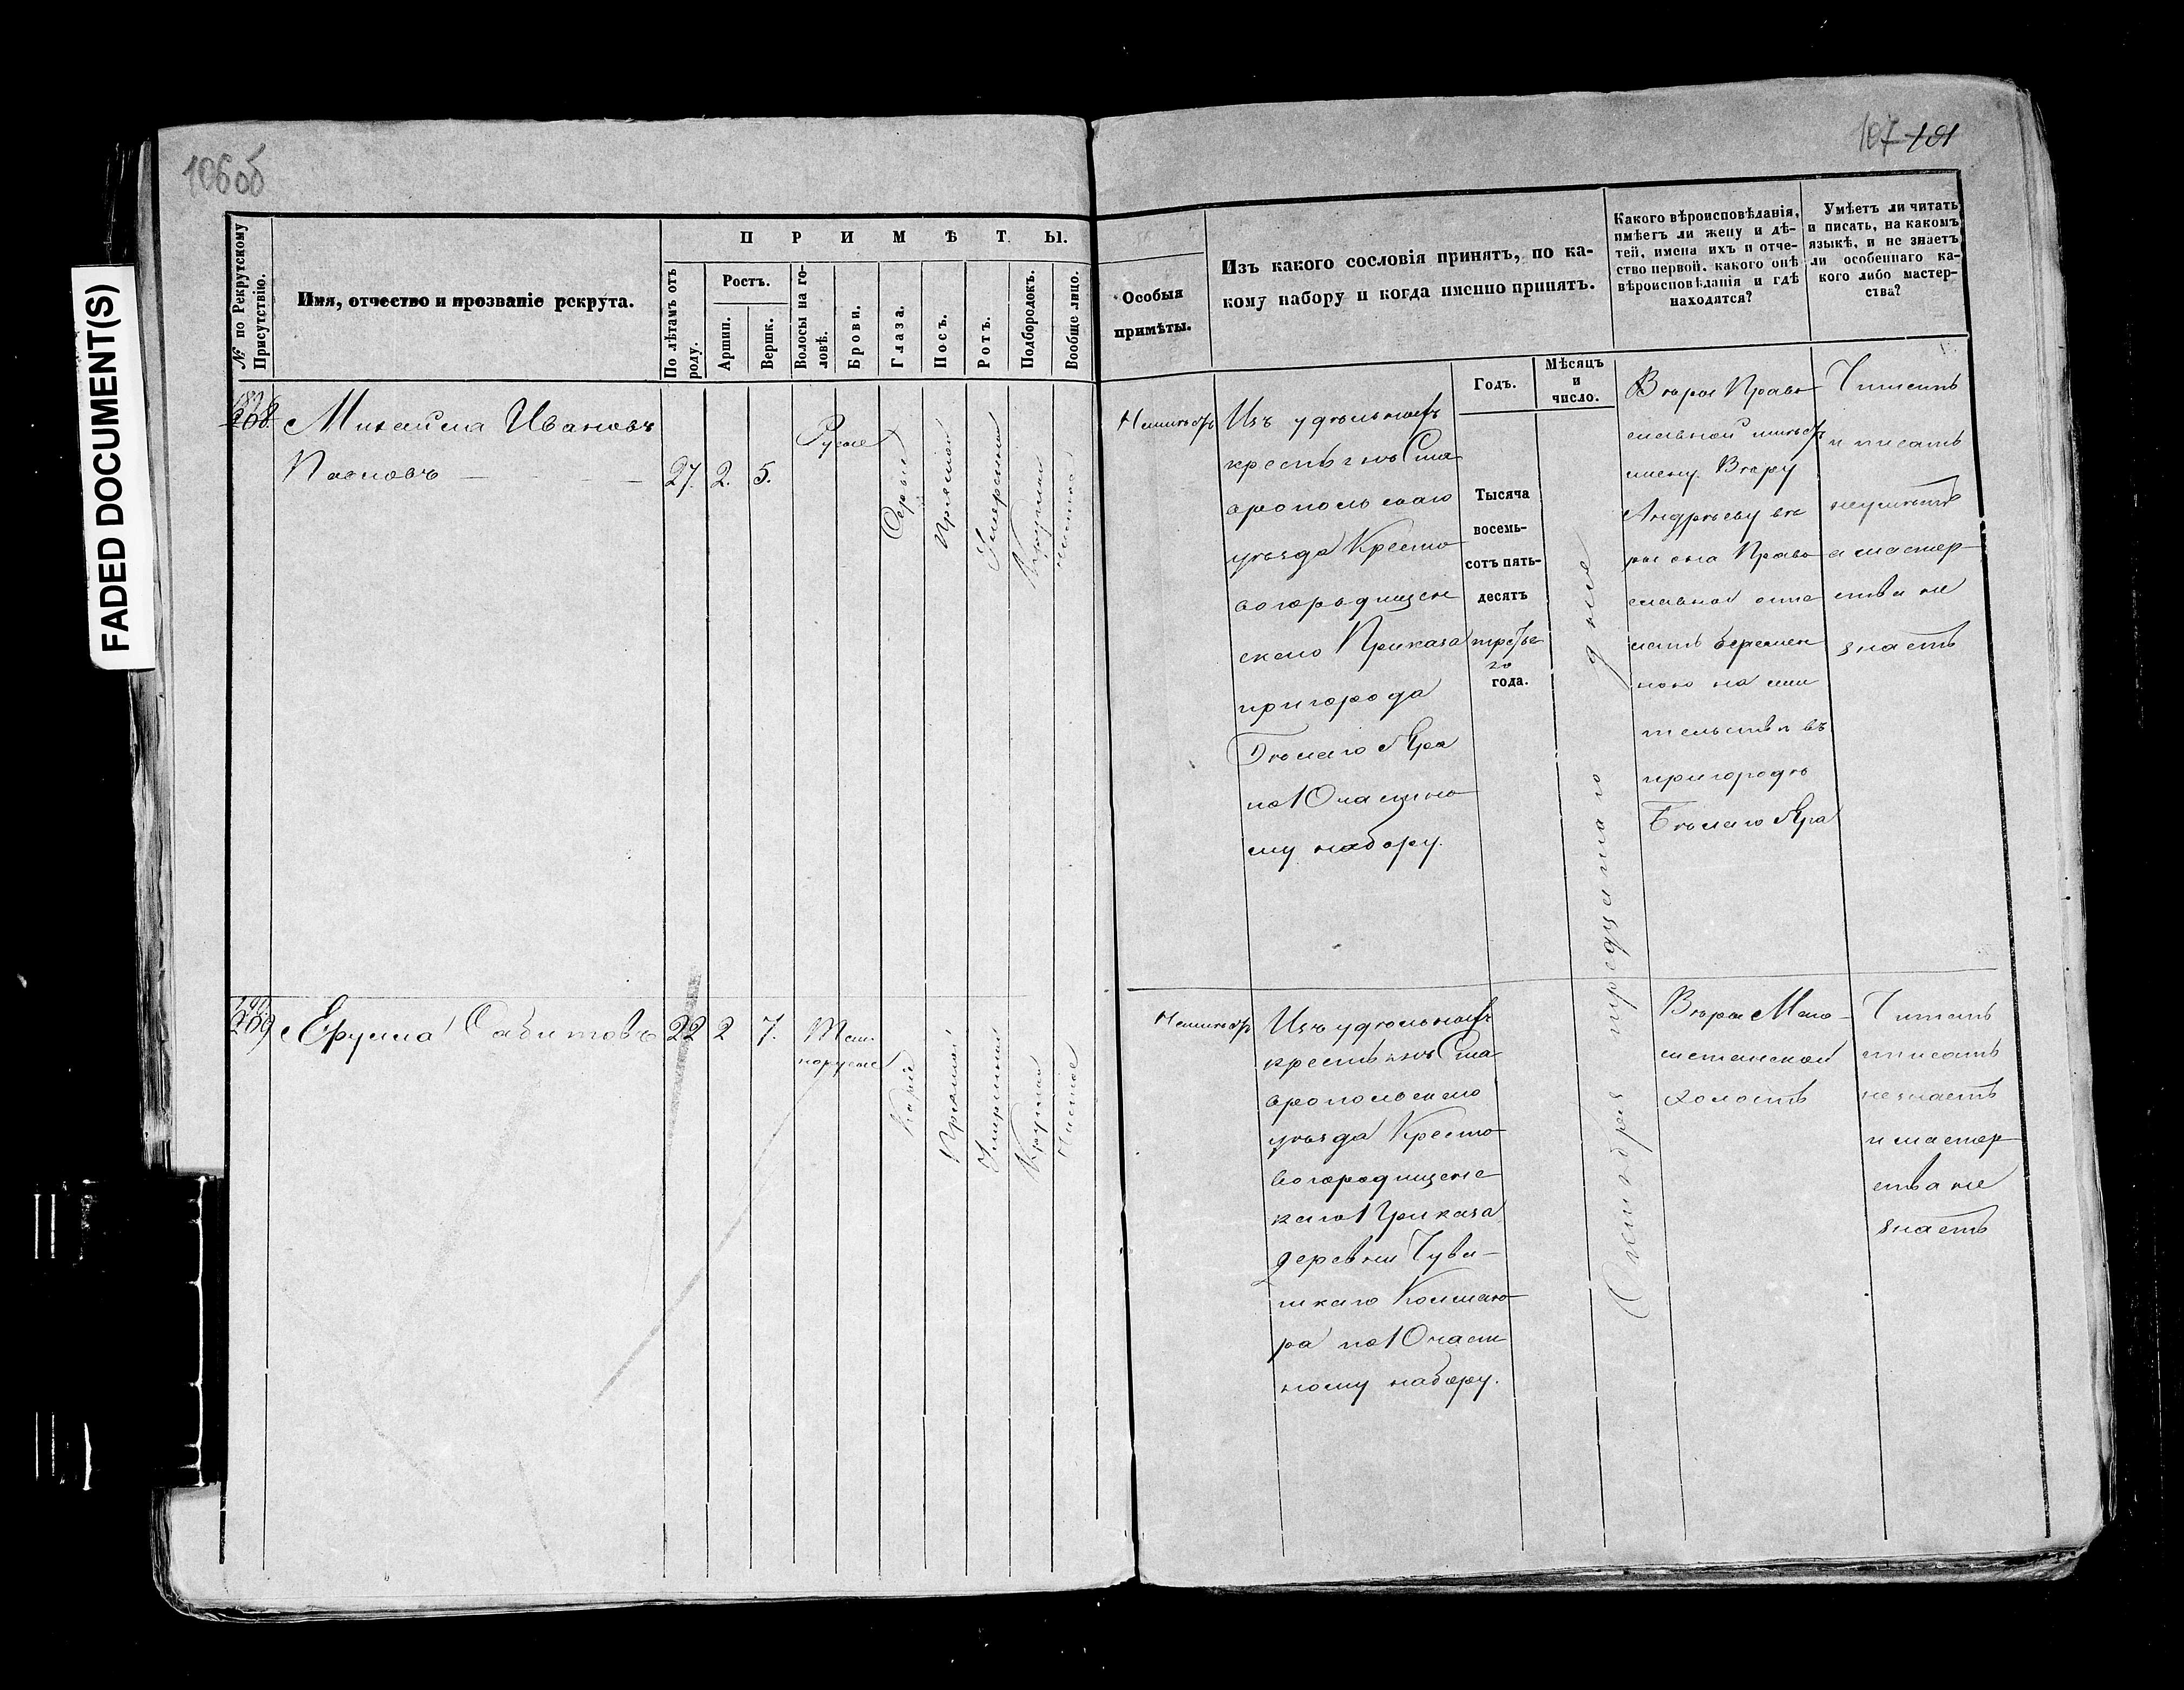 FADED DOCUMENT(S)
106об
107 101
№ по Рекрутскому Присутствію.
Имя, отчество и прозваніе рекрута.
ПРИМѢТЫ.
По лѣтамъ отъ роду.
Ростъ.
Аршин.
Вершк.
Волосы на головѣ.
Брови.
Глаза.
Носъ.
Ротъ.
Подбородокъ.
Вообще лицо.
Особыя
примѣты.
Изъ какого сословія принятъ, по ка-
кому набору и когда именно принятъ.
Годъ.
Мѣсяцъ
и
число.
Какого вѣроисповѣданія,
имѣетъ ли жену и дѣ-
тей, имена ихъ и отче-
ство первой, какого онѣ
вѣроисповѣданія и гдѣ
находятся?
Умѣетъ ли читать
и писать, на какомъ
языкѣ, и не знаетъ
ли особеннаго ка-
кого либо мастер-
ства?
208.
Михайла Ивановъ
27. 2. 5.
Русые
Серые
Прямой
Умеренный
Круглый
чистое
Неимѣетъ
Изъ удѣльныхъ
крестьянъ Ста
вропольскаго
уѣзда Кресто
вогородищен
скаго Приказа
пригорода
Бѣлаго Яра
по 10 частно
му набору.
Тысяча
восемь-
сотъ пять-
десятъ
третья
го
года.
Октября тридцатаго дня
Вѣры Право
славной имѣетъ
жену Вѣру
Андрѣеву вѣ
ры она Право
славной оста
лась беремен
ною на жи
тельстве въ
пригородѣ
Бѣлаго Яра
Читать
и писать
неумѣетъ
а мастер
ства не
знаетъ
209
Ерулла Сабитовъ 22 2 7.
Тем
норусые
Каріе
Прямой
Умеренный
Круглый
Чистое
Неимѣетъ
Изъ удѣльныхъ
крестьянъ Ста
вропольскаго
уѣзда Кресто
вогородищенс
каго Приказа
деревни Чува
шкаго Калмаю
ра по 10 част
ному набору.
Вѣры Маго
метанской
холостъ
Читать
и писать
не знаетъ
и мастер
ства не
знаетъ